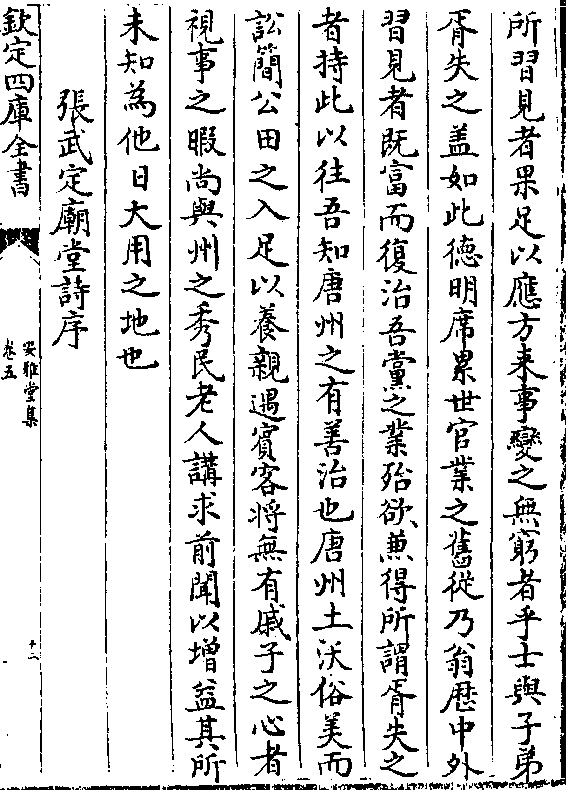 所習見者果足以應方来事變之無窮者乎士與子弟
胥失之盖如此德明席累世官業之舊從乃翁歴中外
習見者既富而復治吾黨之業殆欲兼得所謂胥失之
者持此以往吾知唐州之有善治也唐州土沃俗美而
訟簡公田之入足以養親遇賓客將無有戚子之心者
視事之暇尚與州之秀民老人講求前聞以增益其所
未知為他日大用之地也
張武定廟堂詩序
欽定四庫全書
安雅堂集
卷五
十二